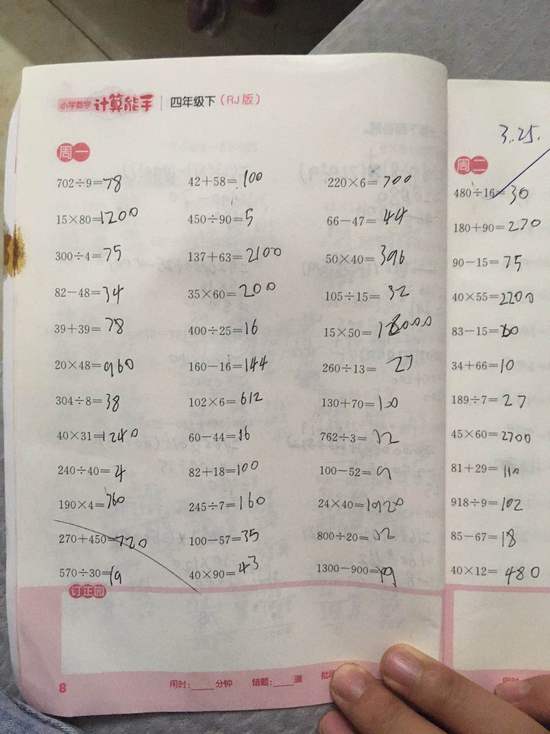 小学数学 计算能手 四年级下（RJ版）
3.25.
周一
702÷9=78 42+58=100 220×6=700
15×80=1200 450÷90=5 66-47=44
300÷4=75 137+63=2100 50×40=396
82-48=34 35×60=200 105÷15=32
39+39=78 400÷25=16 15×50=
20×48=960 160-16=144 260÷13=27
304÷8=38 102×6=612 130+70=
40×31=1240 60-44=16 762÷3=32
240÷40=4 82+18=100 100-52=9
190×4=760 245÷7=160 24×40=1920
270+450=720 100-57=35 800÷20=32
570÷30=19 40×90=43 1300-900=19
周二
480÷16=30
180+90=270
90-15=75
40×55=2200
83-15=
34+66=10
189÷7=27
45×60=2700
81+29=110
918÷9=102
85-67=18
40×12=480
订正园
8 用时：____分钟 错题：____道